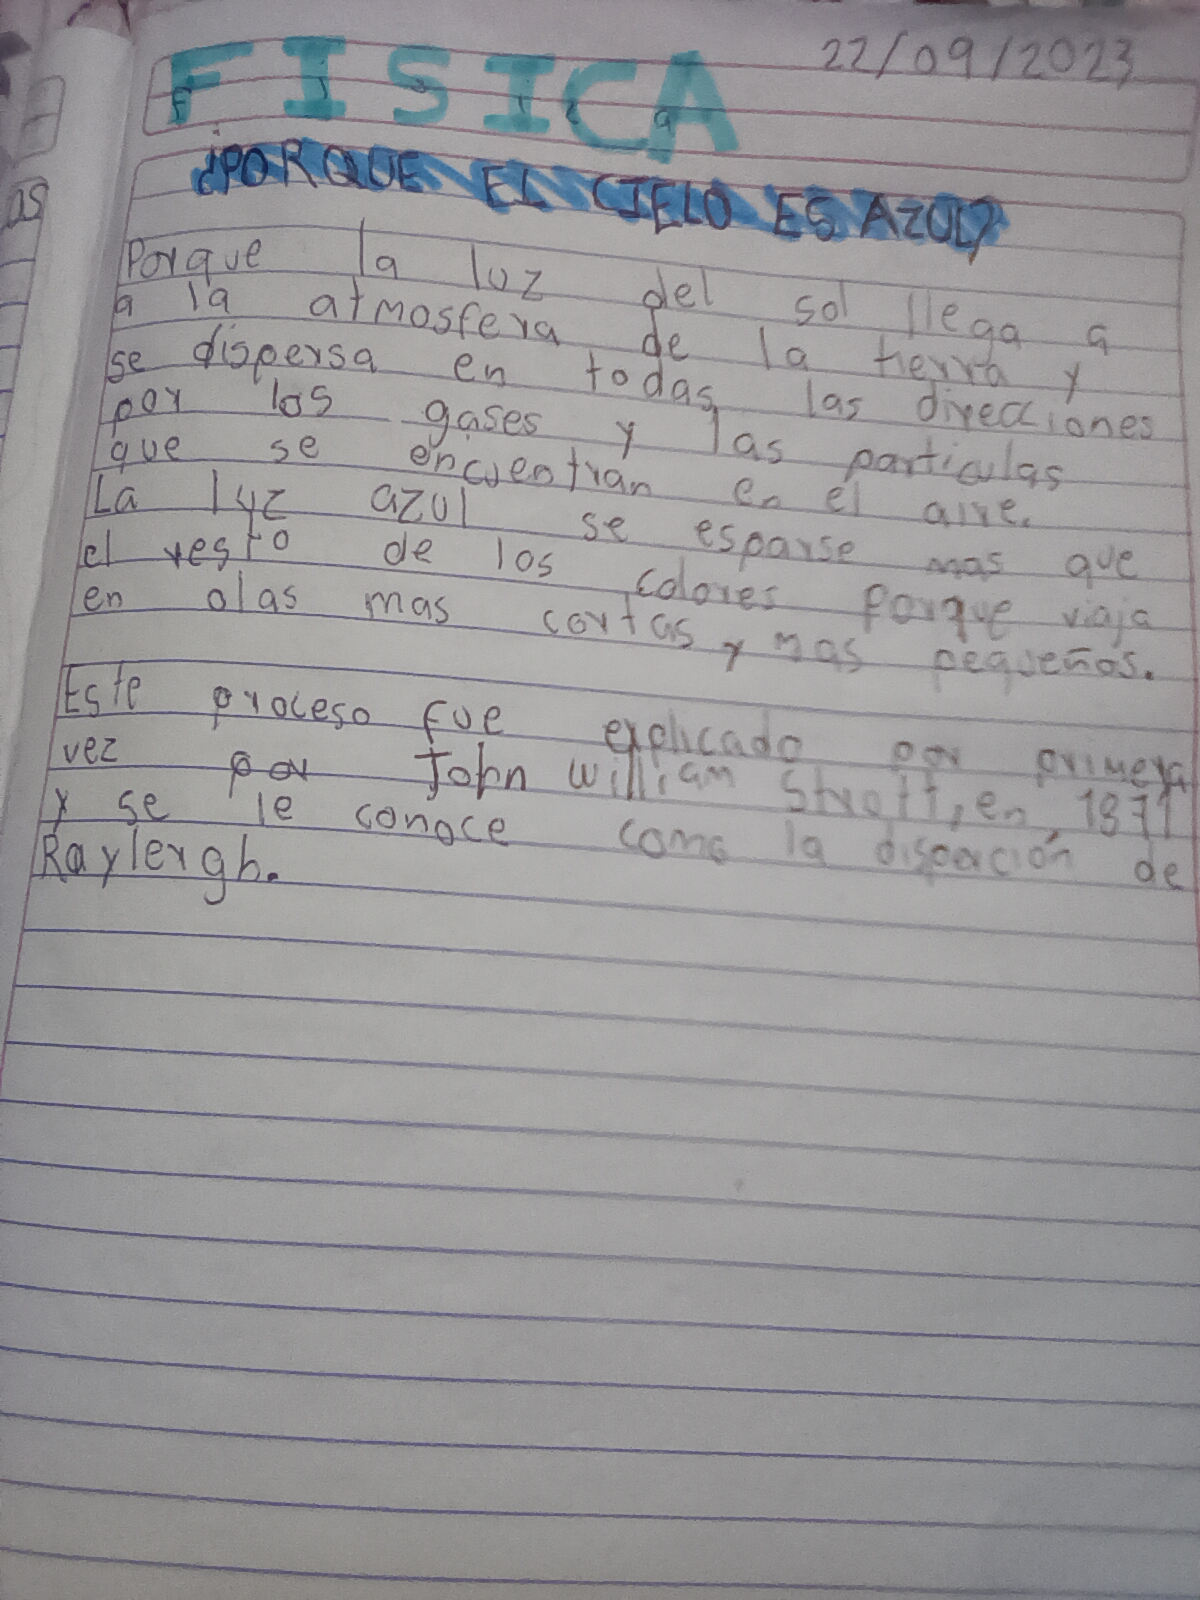 22/09/2023
FISICA
¿PORQUE EL CIELO ES AZUL?
Porque la luz del sol llega a
a la atmosfera de la tierra y
se dispersa en todas las direcciones
por los gases y las particulas
que se encuentran en el aire.
La luz azul se esparse mas que
el resto de los colores porque viaja
en olas mas cortas y mas pequeños.
Este proceso fue explicado por primera
vez por John William Strott, en, 1871
y se le conoce como la disparción de
Raylergh.